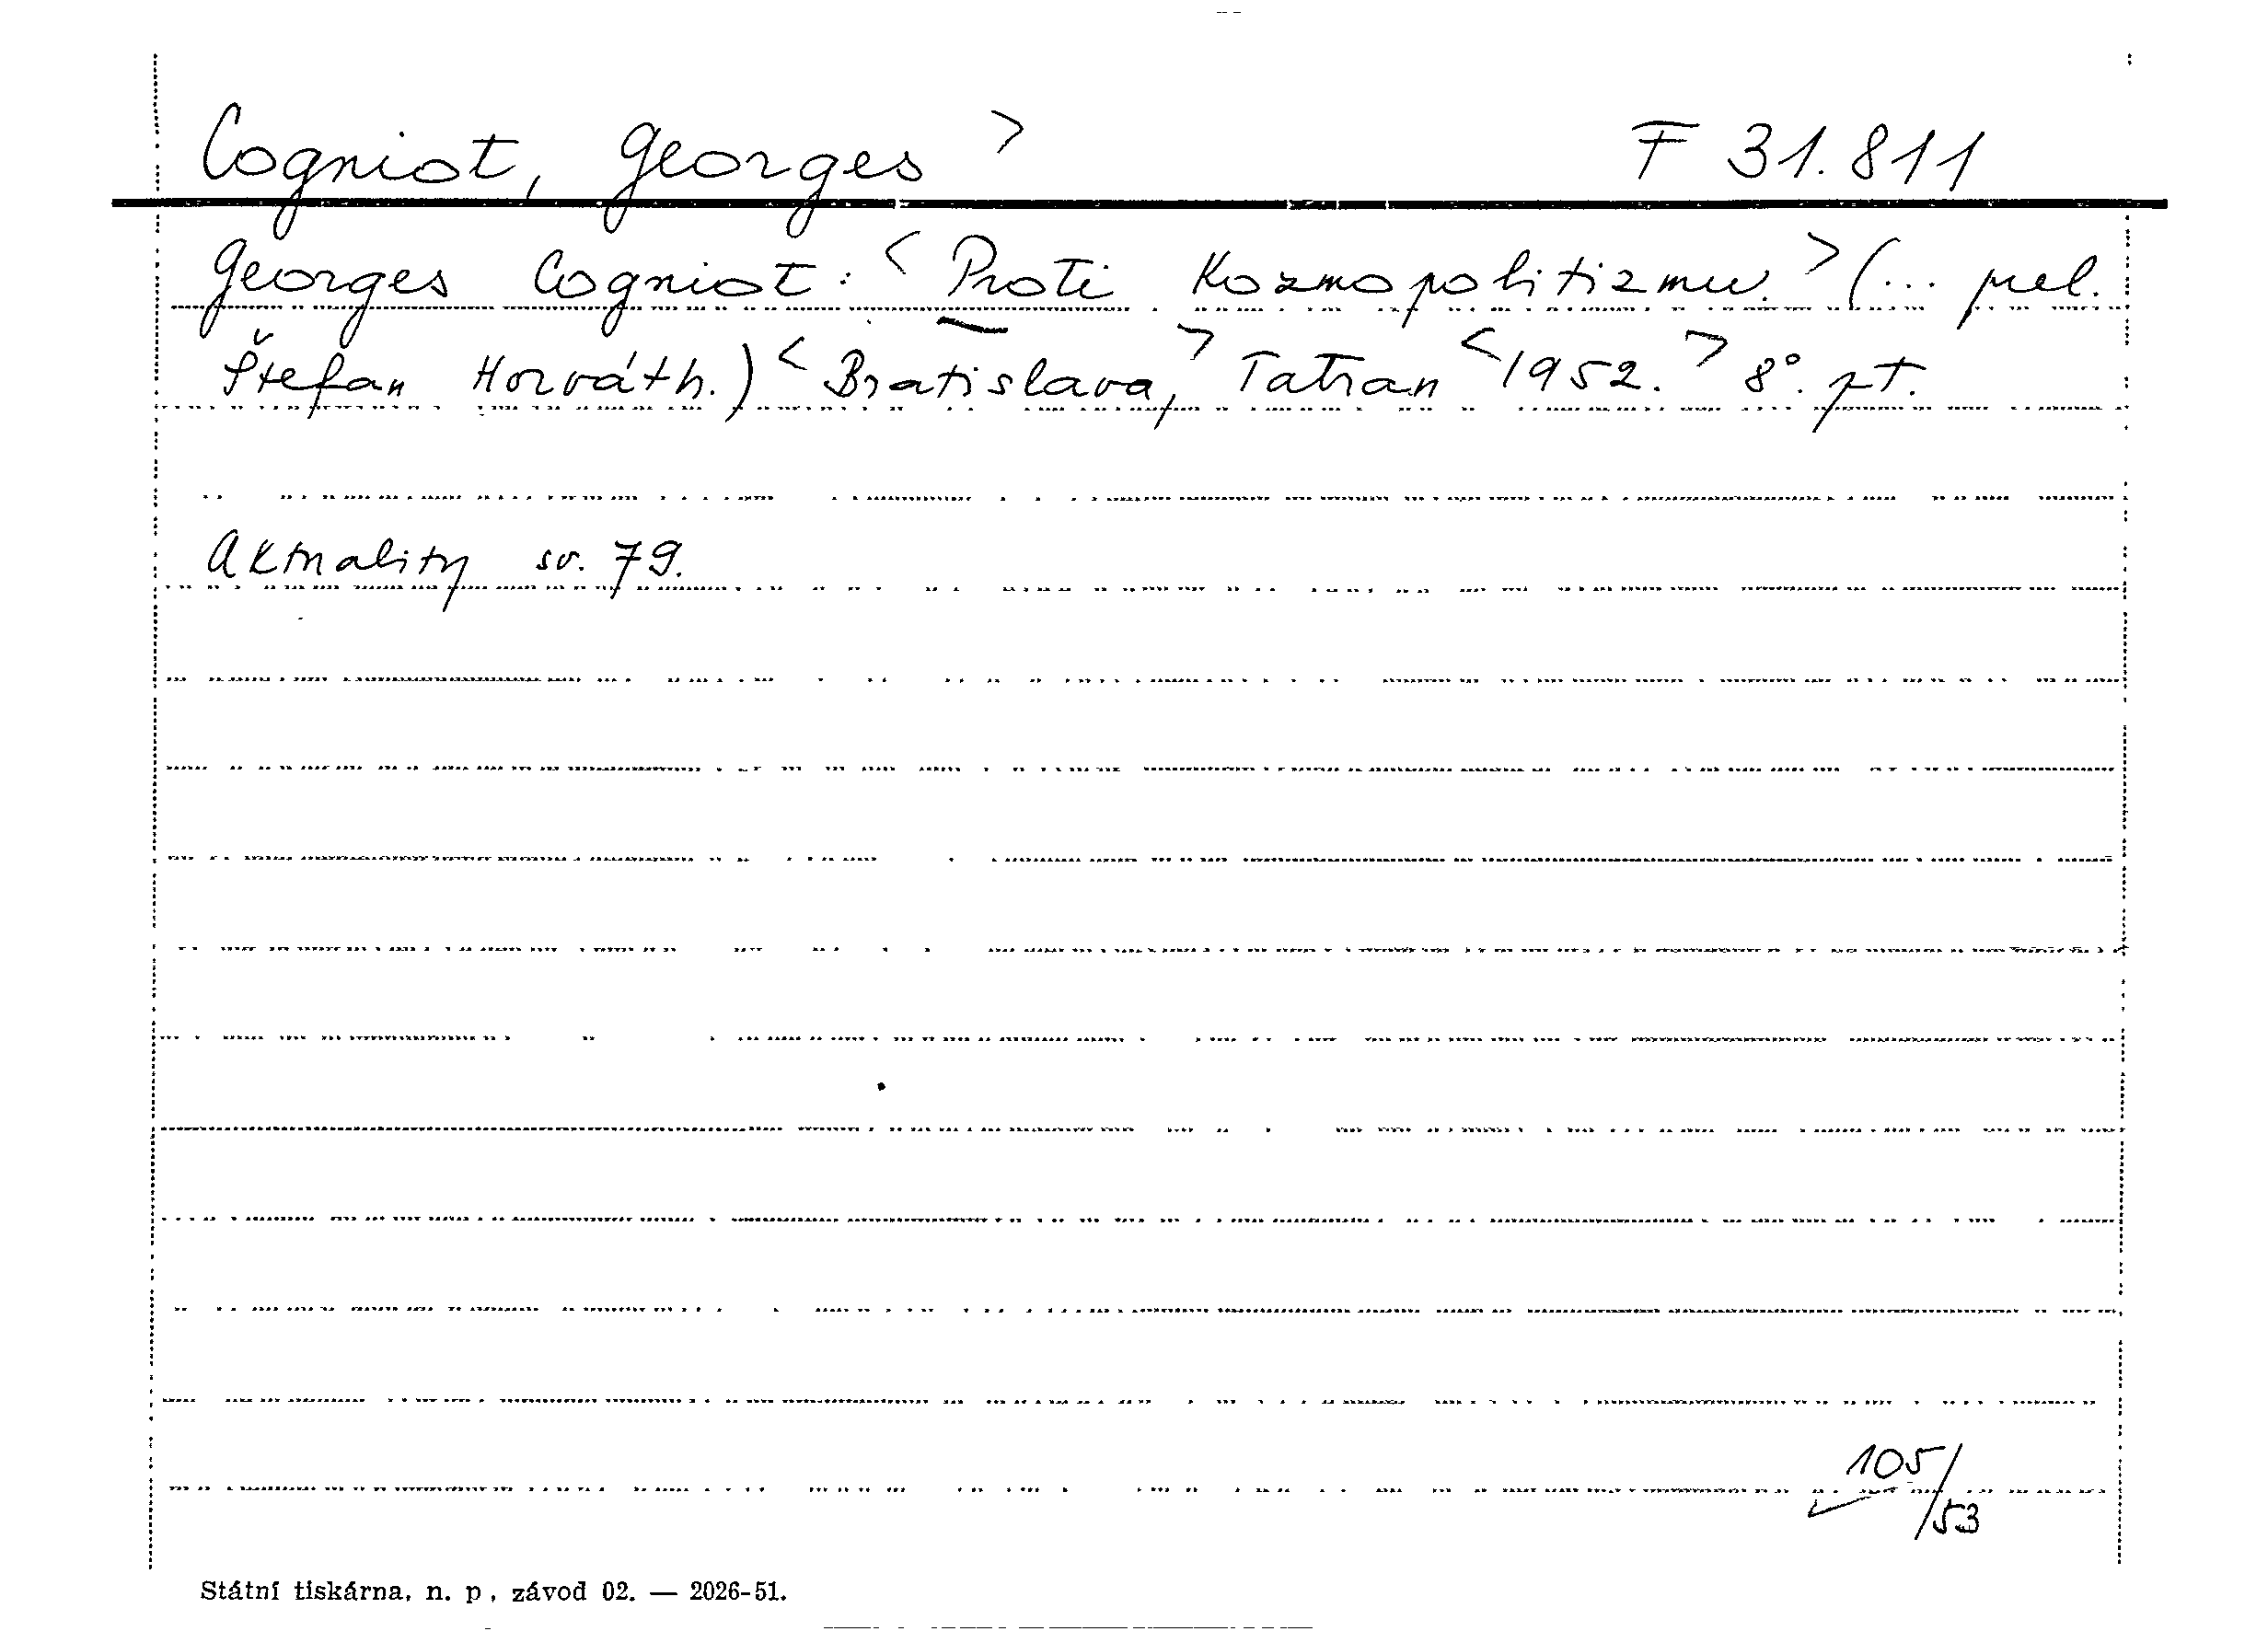 Cogniot, Georges > F 31.811
Georges Cogniot: < Proti Kozmopolitizmu. > (... prel.
Štefan Horváth.) < Bratislava, > Tatran < 1952. > 8°. pt.
Aktuality sv. 79.
105/53
Státní tiskárna, n. p., závod 02. — 2026-51.